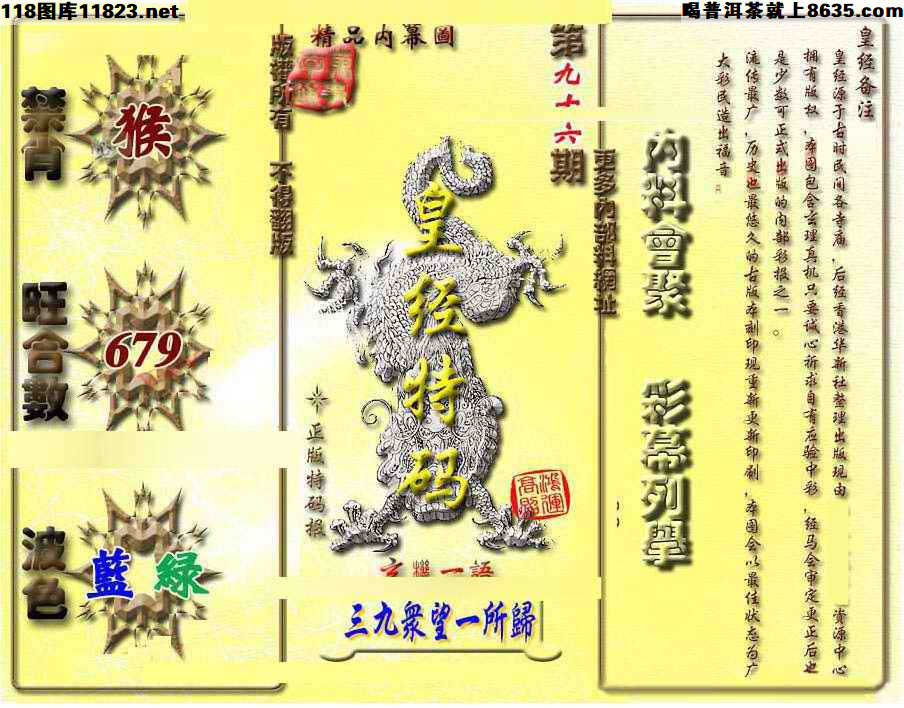 118图库11823.net
喝普洱茶就上8635.com
精品内幕圖
第九十六期
版權所有 不得翻版
禁肖
猴
旺合數
679
波色
藍 綠
皇经特码
正版特码报
鴻運高照
玄機一語
三九衆望一所歸
更多內部料網址
內料會聚 彩幕列舉
皇经备注
皇经源于古时民间各寺庙，后经香港华新社整理出版现由 资源中心
拥有版权，本图包含玄理真机只要诚心祈求自有应验中彩，经马会审定更正后也
是少数可正式出版的内部彩报之一。
流传最广，历史也最悠久的古版本刻印现重新更新印刷，本图会以最佳状态为广
大彩民造出福音